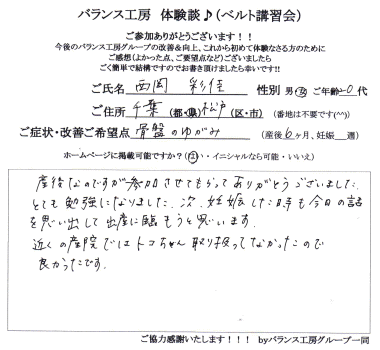 バランス工房 体験談♪(ベルト講習会)
ご参加ありがとうございます!!
今後のバランス工房グループの改善&向上、これから初めて体験なさる方のために
ご感想(よかった点、ご要望点など)ございましたら
ごく簡単で結構ですのでお書き頂けましたら幸いです!!
ご氏名 西岡 彩佳 性別 男・女 ご年齢20代
ご住所 千葉(都・県)松戸(区・市) (番地は不要です(^^))
ご症状・改善ご希望点 骨盤のゆがみ (産後6ヶ月、妊娠 週)
ホームページに掲載可能ですか?(はい・イニシャルなら可能・いいえ)
産後なのですが参加させてもらってありがとうございました。
とても勉強になりました。次、妊娠した時も今日の話
を思い出して出産に臨もうと思います。
近くの産院ではトコちゃん取り扱ってなかったので
良かったです。
ご協力感謝いたします!!! byバランス工房グループ一同